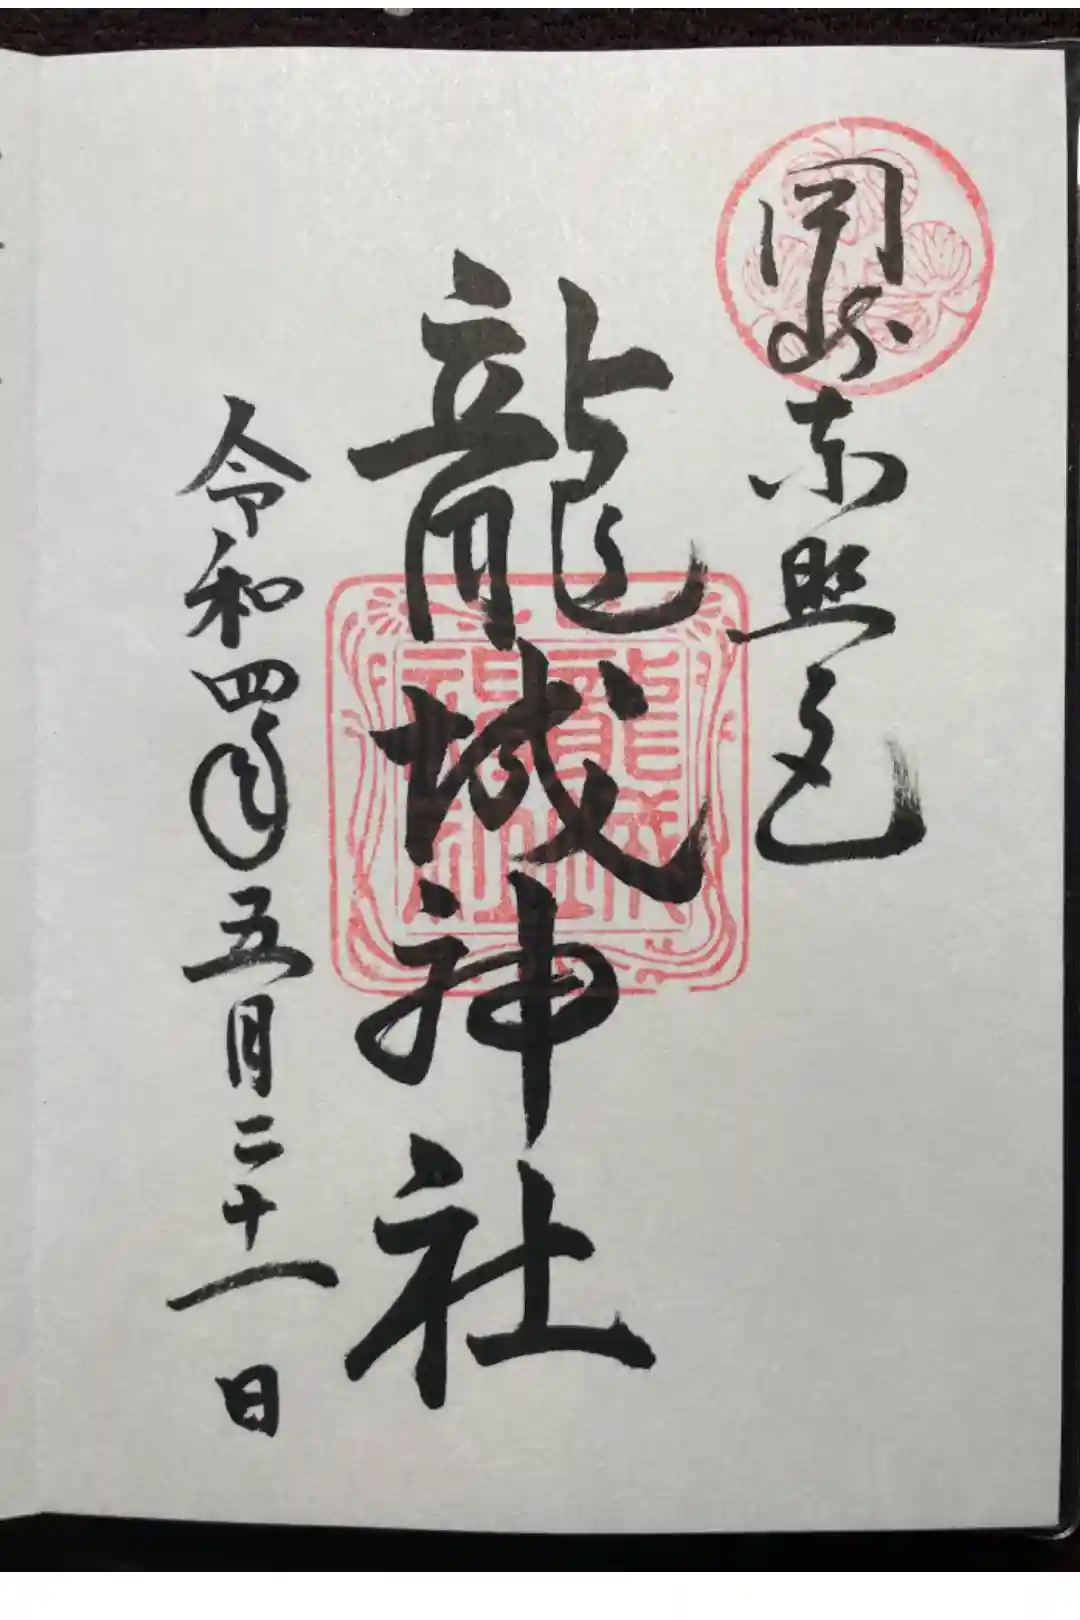 岡崎東照宮
龍城神社
令和四年五月二十一日
龍城
神社